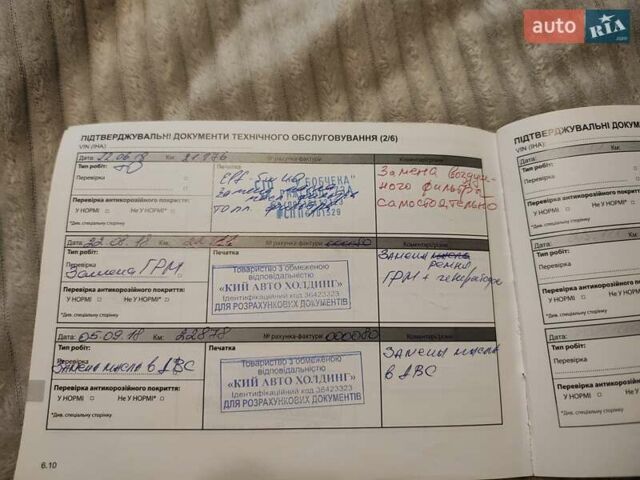 auto RIA.com
ПІДТВЕРДЖУВАЛЬНІ ДОКУМЕНТИ ТЕХНІЧНОГО ОБСЛУГОВУВАННЯ (2/6)
VIN (ІНА):
Дата: 22.06.18 Км: 21976 № рахунка-фактури: Коментарі/різне
Тип робіт: ТО
Печатка
Перевірка
СТО "БОБЧЕКА"
Замена воздушного фильтра самостоятельно
Перевірка антикорозійного покриття:
У НОРМІ Не У НОРМІ*
*Див. спеціальну сторінку
Дата: 22.08.18 Км: № рахунка-фактури: Коментарі/різне
Тип робіт:
Печатка
Перевірка
Замена ГРМ
Товариство з обмеженою
відповідальністю
«КИЙ АВТО ХОЛДИНГ»
Ідентифікаційний код 36423323
ДЛЯ РОЗРАХУНКОВИХ ДОКУМЕНТІВ
Замена ремня
ГРМ + генератора
Перевірка антикорозійного покриття:
У НОРМІ Не У НОРМІ*
*Див. спеціальну сторінку
Дата: 05.09.18 Км: 22878 № рахунка-фактури: 000080 Коментарі/різне
Тип робіт:
Печатка
Перевірка
Замена масла в ДВС
Товариство з обмеженою
відповідальністю
«КИЙ АВТО ХОЛДИНГ»
Ідентифікаційний код 36423323
ДЛЯ РОЗРАХУНКОВИХ ДОКУМЕНТІВ
Замена масла
в ДВС
Перевірка антикорозійного покриття:
У НОРМІ Не У НОРМІ*
*Див. спеціальну сторінку
6.10
ПІДТВЕРДЖУВАЛЬНІ ДОКУМ
VIN (ІНА):
Дата:
Тип робіт:
Перевірка
Перевірка антикорозійного п
У НОРМІ
*Див. спеціальну сторінку
Дата:
Тип робіт:
Перевірка
Перевірка антикорозійного
У НОРМІ
*Див. спеціальну сторінку
Дата:
Тип робіт:
Перевірка
Перевірка антикорозійного
У НОРМІ
*Див. спеціальну сторінку